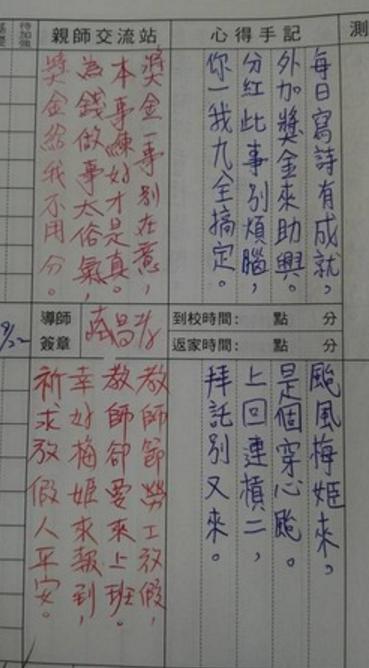 測
心得手記
每日寫詩有成就，
外加獎金來助興。
分紅此事別煩腦，
你一我九全搞定。
親師交流站
獎金一事別在意，
本事練好才是真。
為錢做事太俗氣，
獎金給我不用分。
待加強
到校時間： 點 分
返家時間： 點 分
導師
簽章
9/22
颱風梅姬來，
是個穿心颱。
上回連槓二，
拜託別又來。
教師節勞工放假，
教師卻要來上班。
幸好梅姬來報到，
祈求放假人平安。